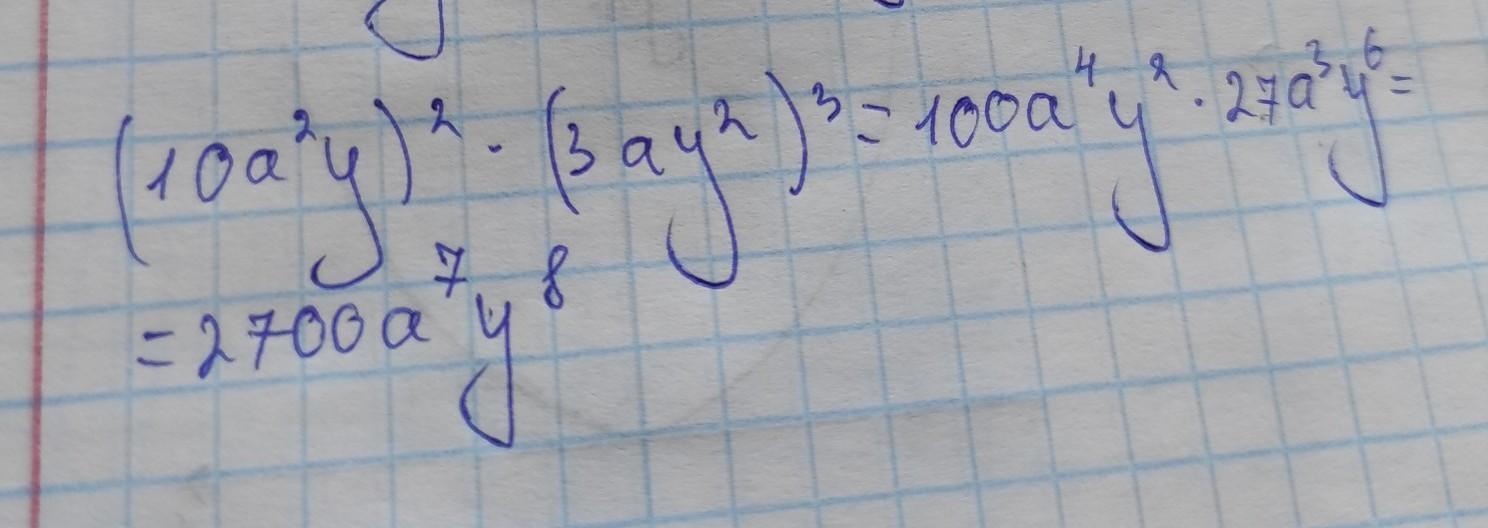 (10a²y)² · (3ay²)³ = 100a⁴y² · 27a³y⁶ =
= 2700a⁷y⁸